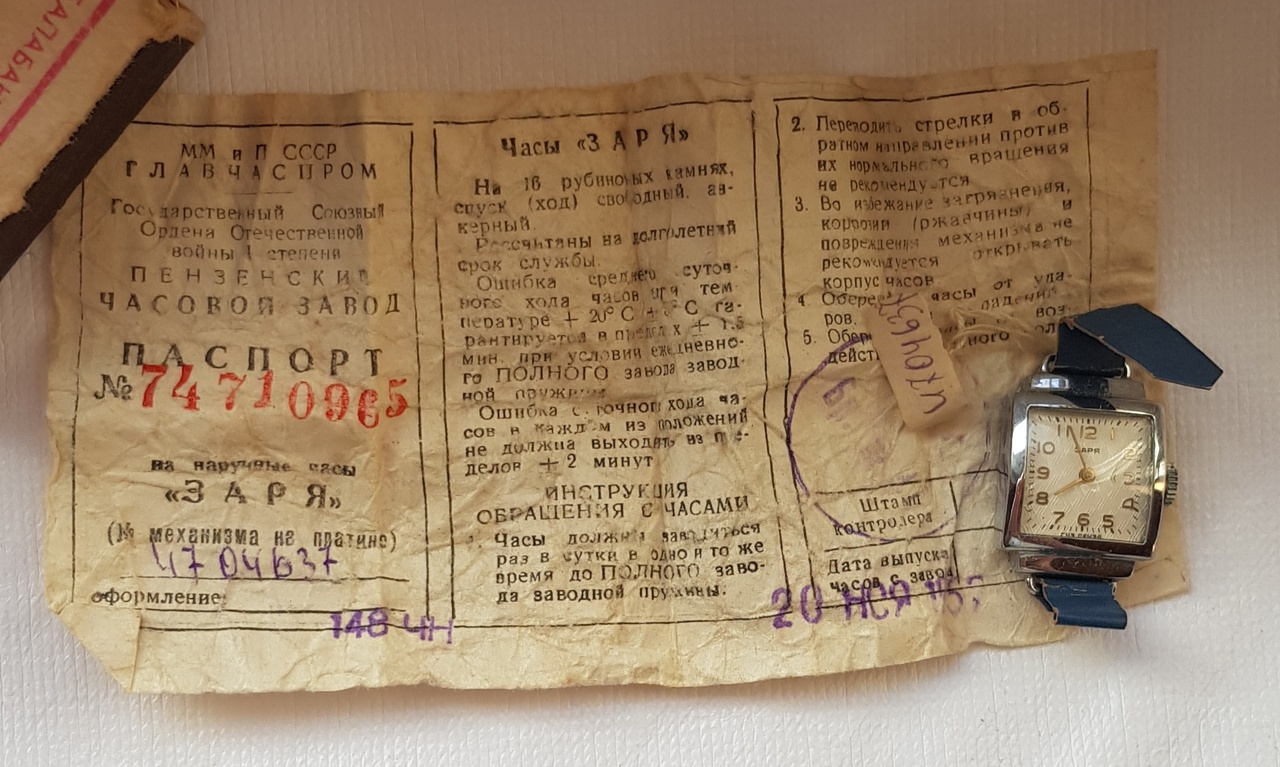 ММ и П СССР
ГЛАВЧАСПРОМ
Государственный Союзный
Ордена Отечественной
войны I степени
ПЕНЗЕНСКИЙ
ЧАСОВОЙ ЗАВОД
ПАСПОРТ
№ 74710965
на наручные часы
«ЗАРЯ»
(№ механизма на платине)
4704637
оформление:
148 ЧН
Часы «ЗАРЯ»
На 16 рубиновых камнях,
спуск (ход) свободный, ан-
керный.
Рассчитаны на долголетний
срок службы.
Ошибка среднего суточ-
ного хода часов при тем-
пературе + 20° С ± 5° С га-
рантируется в пределах ± 1.5
мин. при условии ежедневно-
го ПОЛНОГО завода завод-
ной пружины.
Ошибка суточного хода ча-
сов в каждом из положений
не должна выходить из пре-
делов ± 2 минут
ИНСТРУКЦИЯ
ОБРАЩЕНИЯ С ЧАСАМИ
1. Часы должны заводиться
раз в сутки в одно и то же
время до ПОЛНОГО заво-
да заводной пружины.
2. Переводить стрелки в об-
ратном направлении против
их нормального вращения
не рекомендуется
3. Во избежание загрязнения,
коррозии (ржавчины) и
повреждения механизма не
рекомендуется открывать
корпус часов
4. Оберегать часы от уда-
ров, падений
5.
Штамп
контролера
Дата выпуска
часов с завода
20 НОЯ
4704637
ЗАРЯ
12
10
9
8
7 6 5